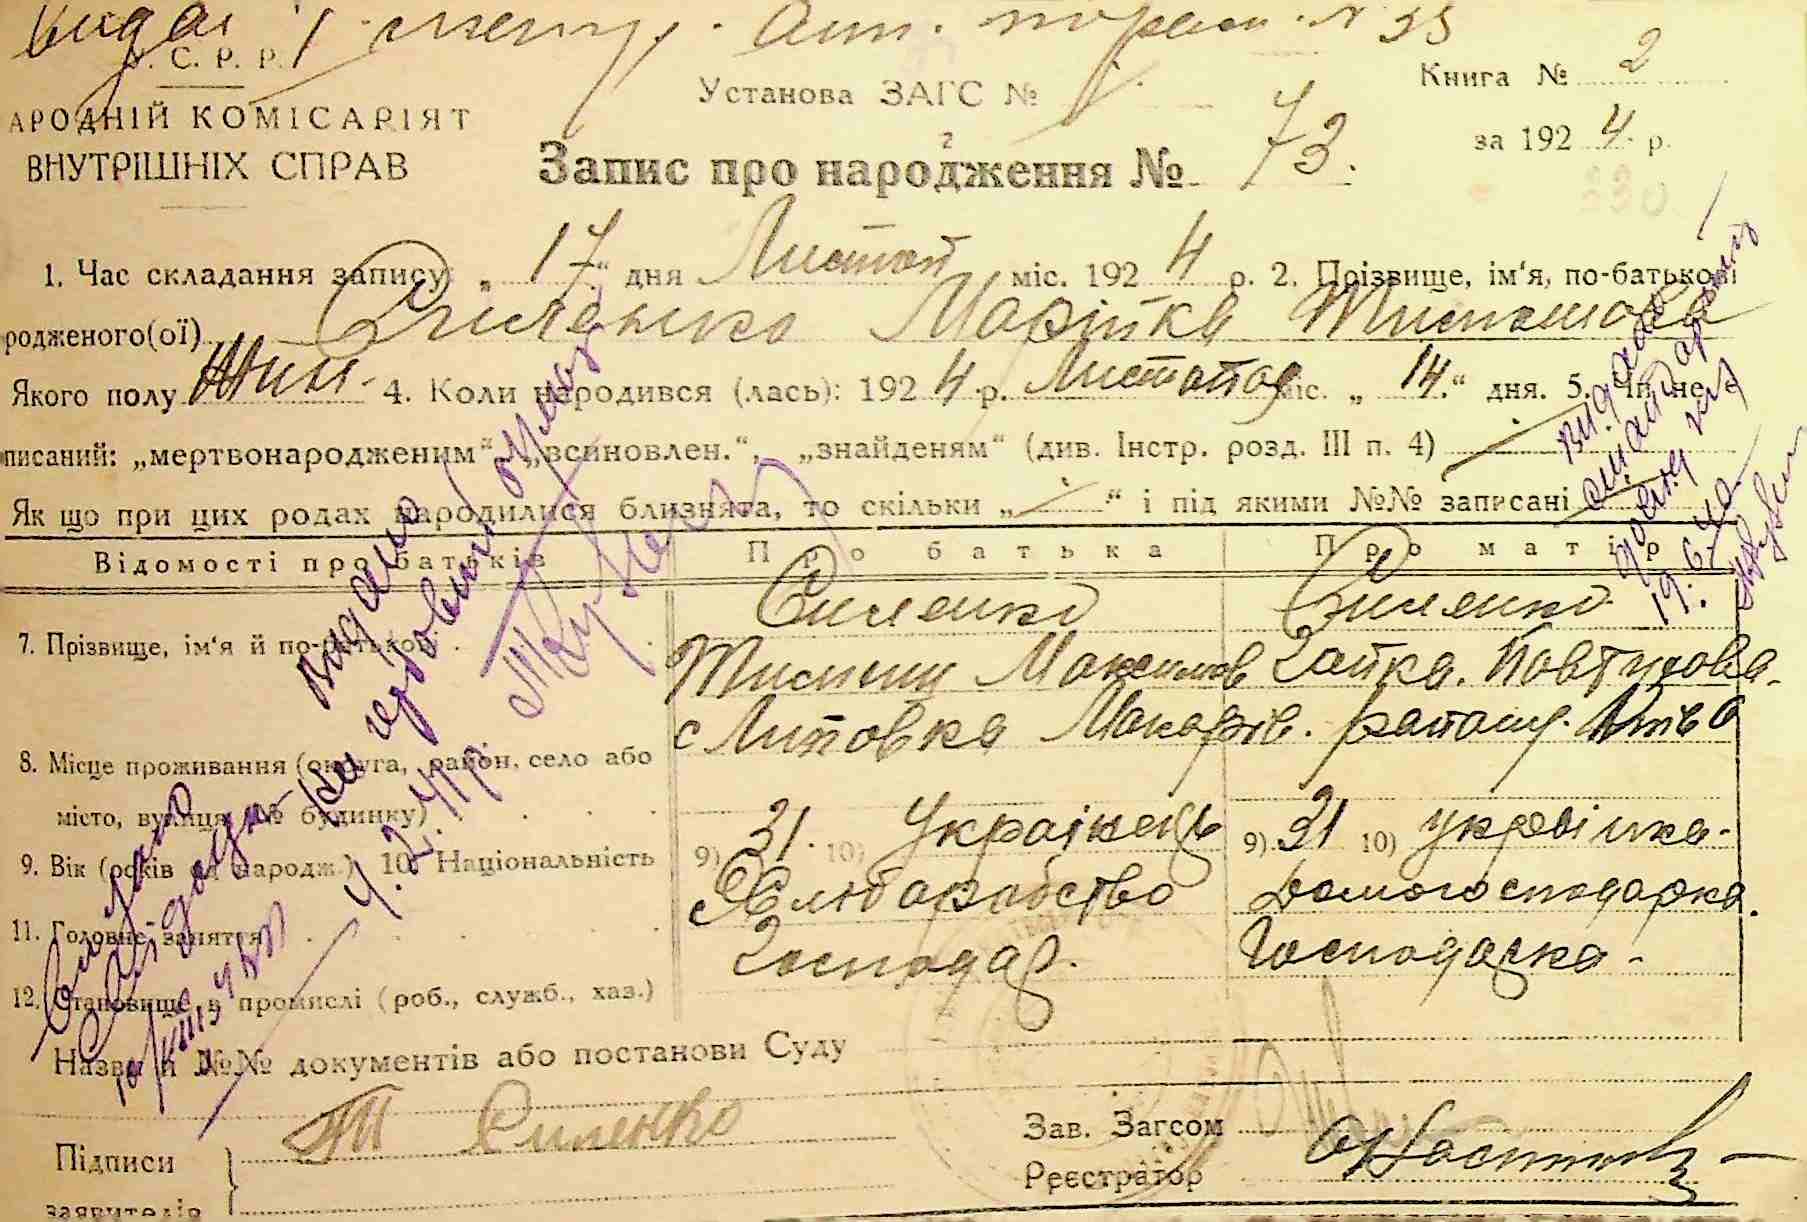 У. С. Р. Р.
АРОДНІЙ КОМІСАРІЯТ
ВНУТРІШНІХ СПРАВ
Установа ЗАГС №
Книга № 2
за 1924 р.
Запис про народження № 73.
1. Час складання запису „17“ дня Листоп міс. 1924 р. 2. Прізвище, ім‘я, по-батькові
родженого(ої) Силенко Марійка Тимошова
Якого полу Жін. 4. Коли народився (лась): 1924 р. Листопад міс. „14“ дня. 5. Чи не є
писаний: „мертвонародженим“, „всиновлен.“, „знайденям“ (див. Інстр. розд. III п. 4)
Як що при цих родах народилися близнята, то скільки „ “ і під якими №№ записані
Відомості про батьків
Про батька
Про матір
7. Прізвище, ім‘я й по-батькові
Силенко
Силенко
Тимиш Максимов
Гапка. Повтухова
8. Місце проживання (округа, район, село або
місто, вулиця, № будинку)
с Липовка Макарів. району. Київ
9. Вік (років од народж.) 10. Національність
9) 31. 10) Українець
9) 31 10) українка
11. Головне заняття
Хліборобство
Домогосподарка.
12. Становище в промислі (роб., служб., хаз.)
Господар.
Господарка
Назви й №№ документів або постанови Суду
Підписи
заявителів
Т Силенко
Зав. Загсом
Реєстратор
видано
4.2.41 р.
19.6.40